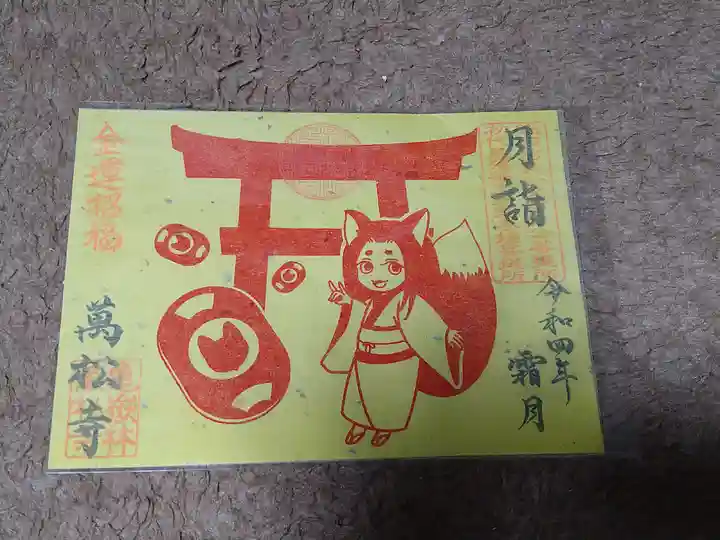 月詣
令和四年
霜月
金運招福
萬松寺